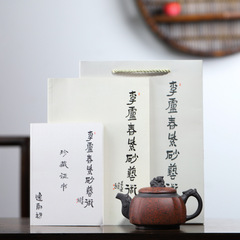 李廬春紫砂藝術
李廬春紫砂藝術
李廬春紫砂藝術
珍藏证书